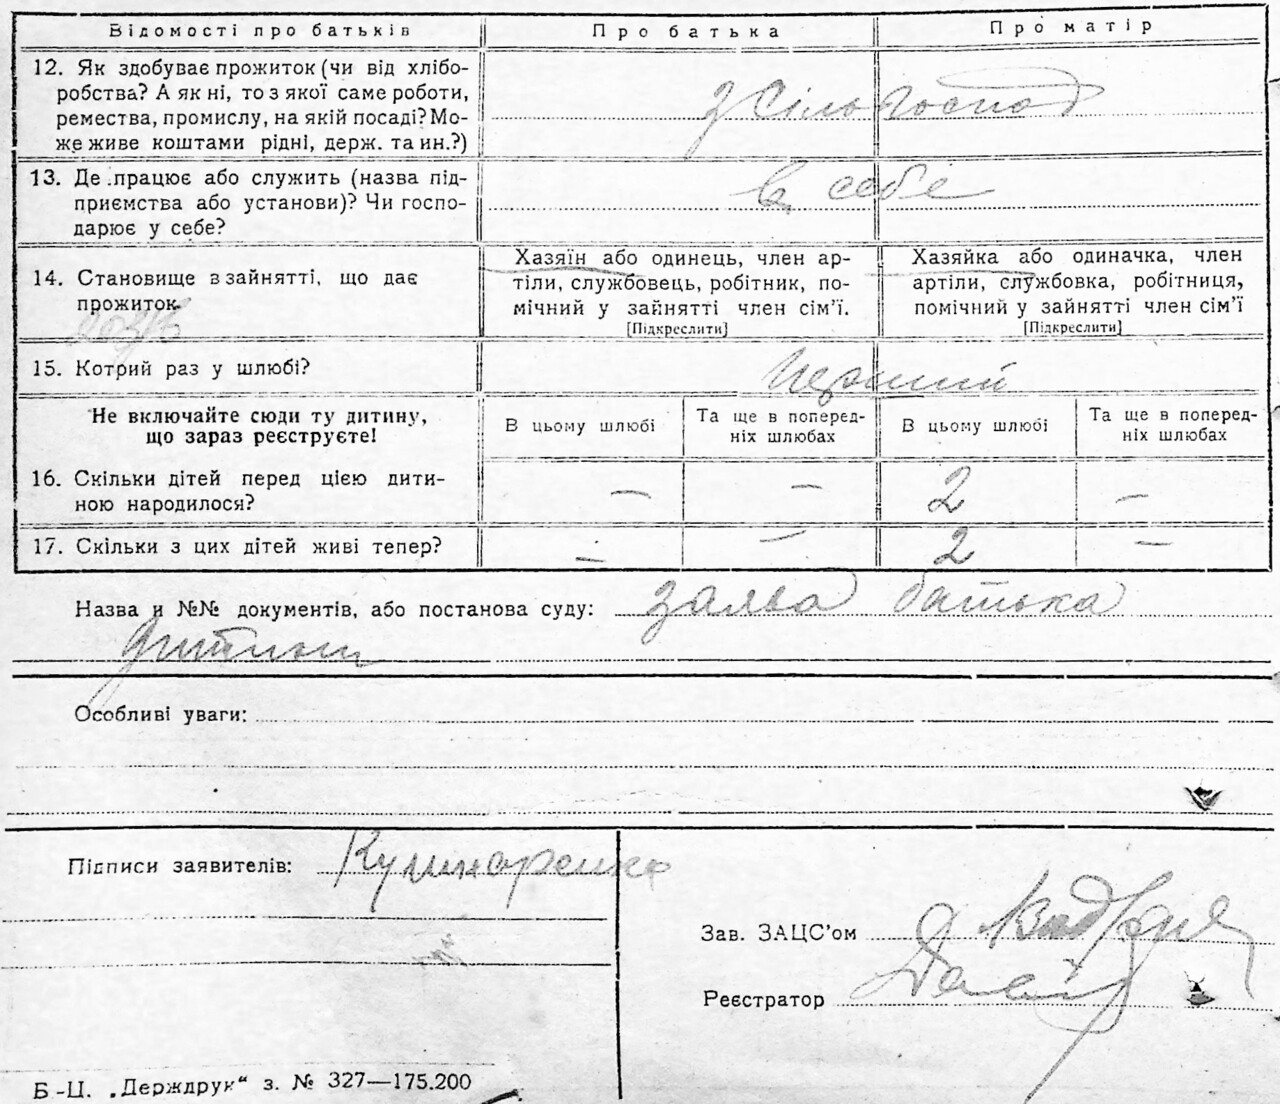 Відомості про батьків Про батька Про матір
12. Як здобуває прожиток (чи від хлібо-
робства? А як ні, то з якої саме роботи,
ремества, промислу, на якій посаді? Мо-
же живе коштами рідні, держ. та ин.?)
з Сільгоспод
13. Де працює або служить (назва під-
приємства або установи)? Чи госпо-
дарює у себе?
в себе
14. Становище в зайнятті, що дає
прожиток.
Хазяїн або одинець, член ар-
тіли, службовець, робітник, по-
мічний у зайнятті член сім'ї.
[Підкреслити]
Хазяйка або одиначка, член
артіли, службовка, робітниця,
помічний у зайнятті член сім'ї
[Підкреслити]
15. Котрий раз у шлюбі? Перший
Не включайте сюди ту дитину,
що зараз реєструєте!
В цьому шлюбі
Та ще в поперед-
ніх шлюбах
В цьому шлюбі
Та ще в поперед-
ніх шлюбах
16. Скільки дітей перед цією дити-
ною народилося?
— — 2 —
17. Скільки з цих дітей живі тепер? — — 2 —
Назва и №№ документів, або постанова суду: заява батька
дитини
Особливі уваги:
Підписи заявителів:
Зав. ЗАЦС'ом
Реєстратор
Б-Ц. „Держдрук“ з. № 327—175.200